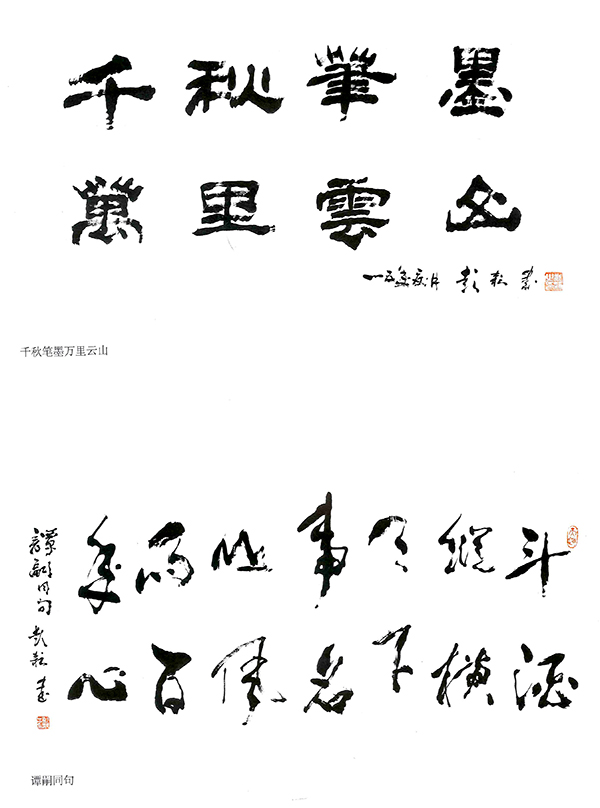 千秋筆墨
萬里雲山
一五年夏月 彭 書
千秋笔墨万里云山
斗酒
縱横
天下
事名
山風
雨百
年心
譚嗣同句 彭 書
谭嗣同句